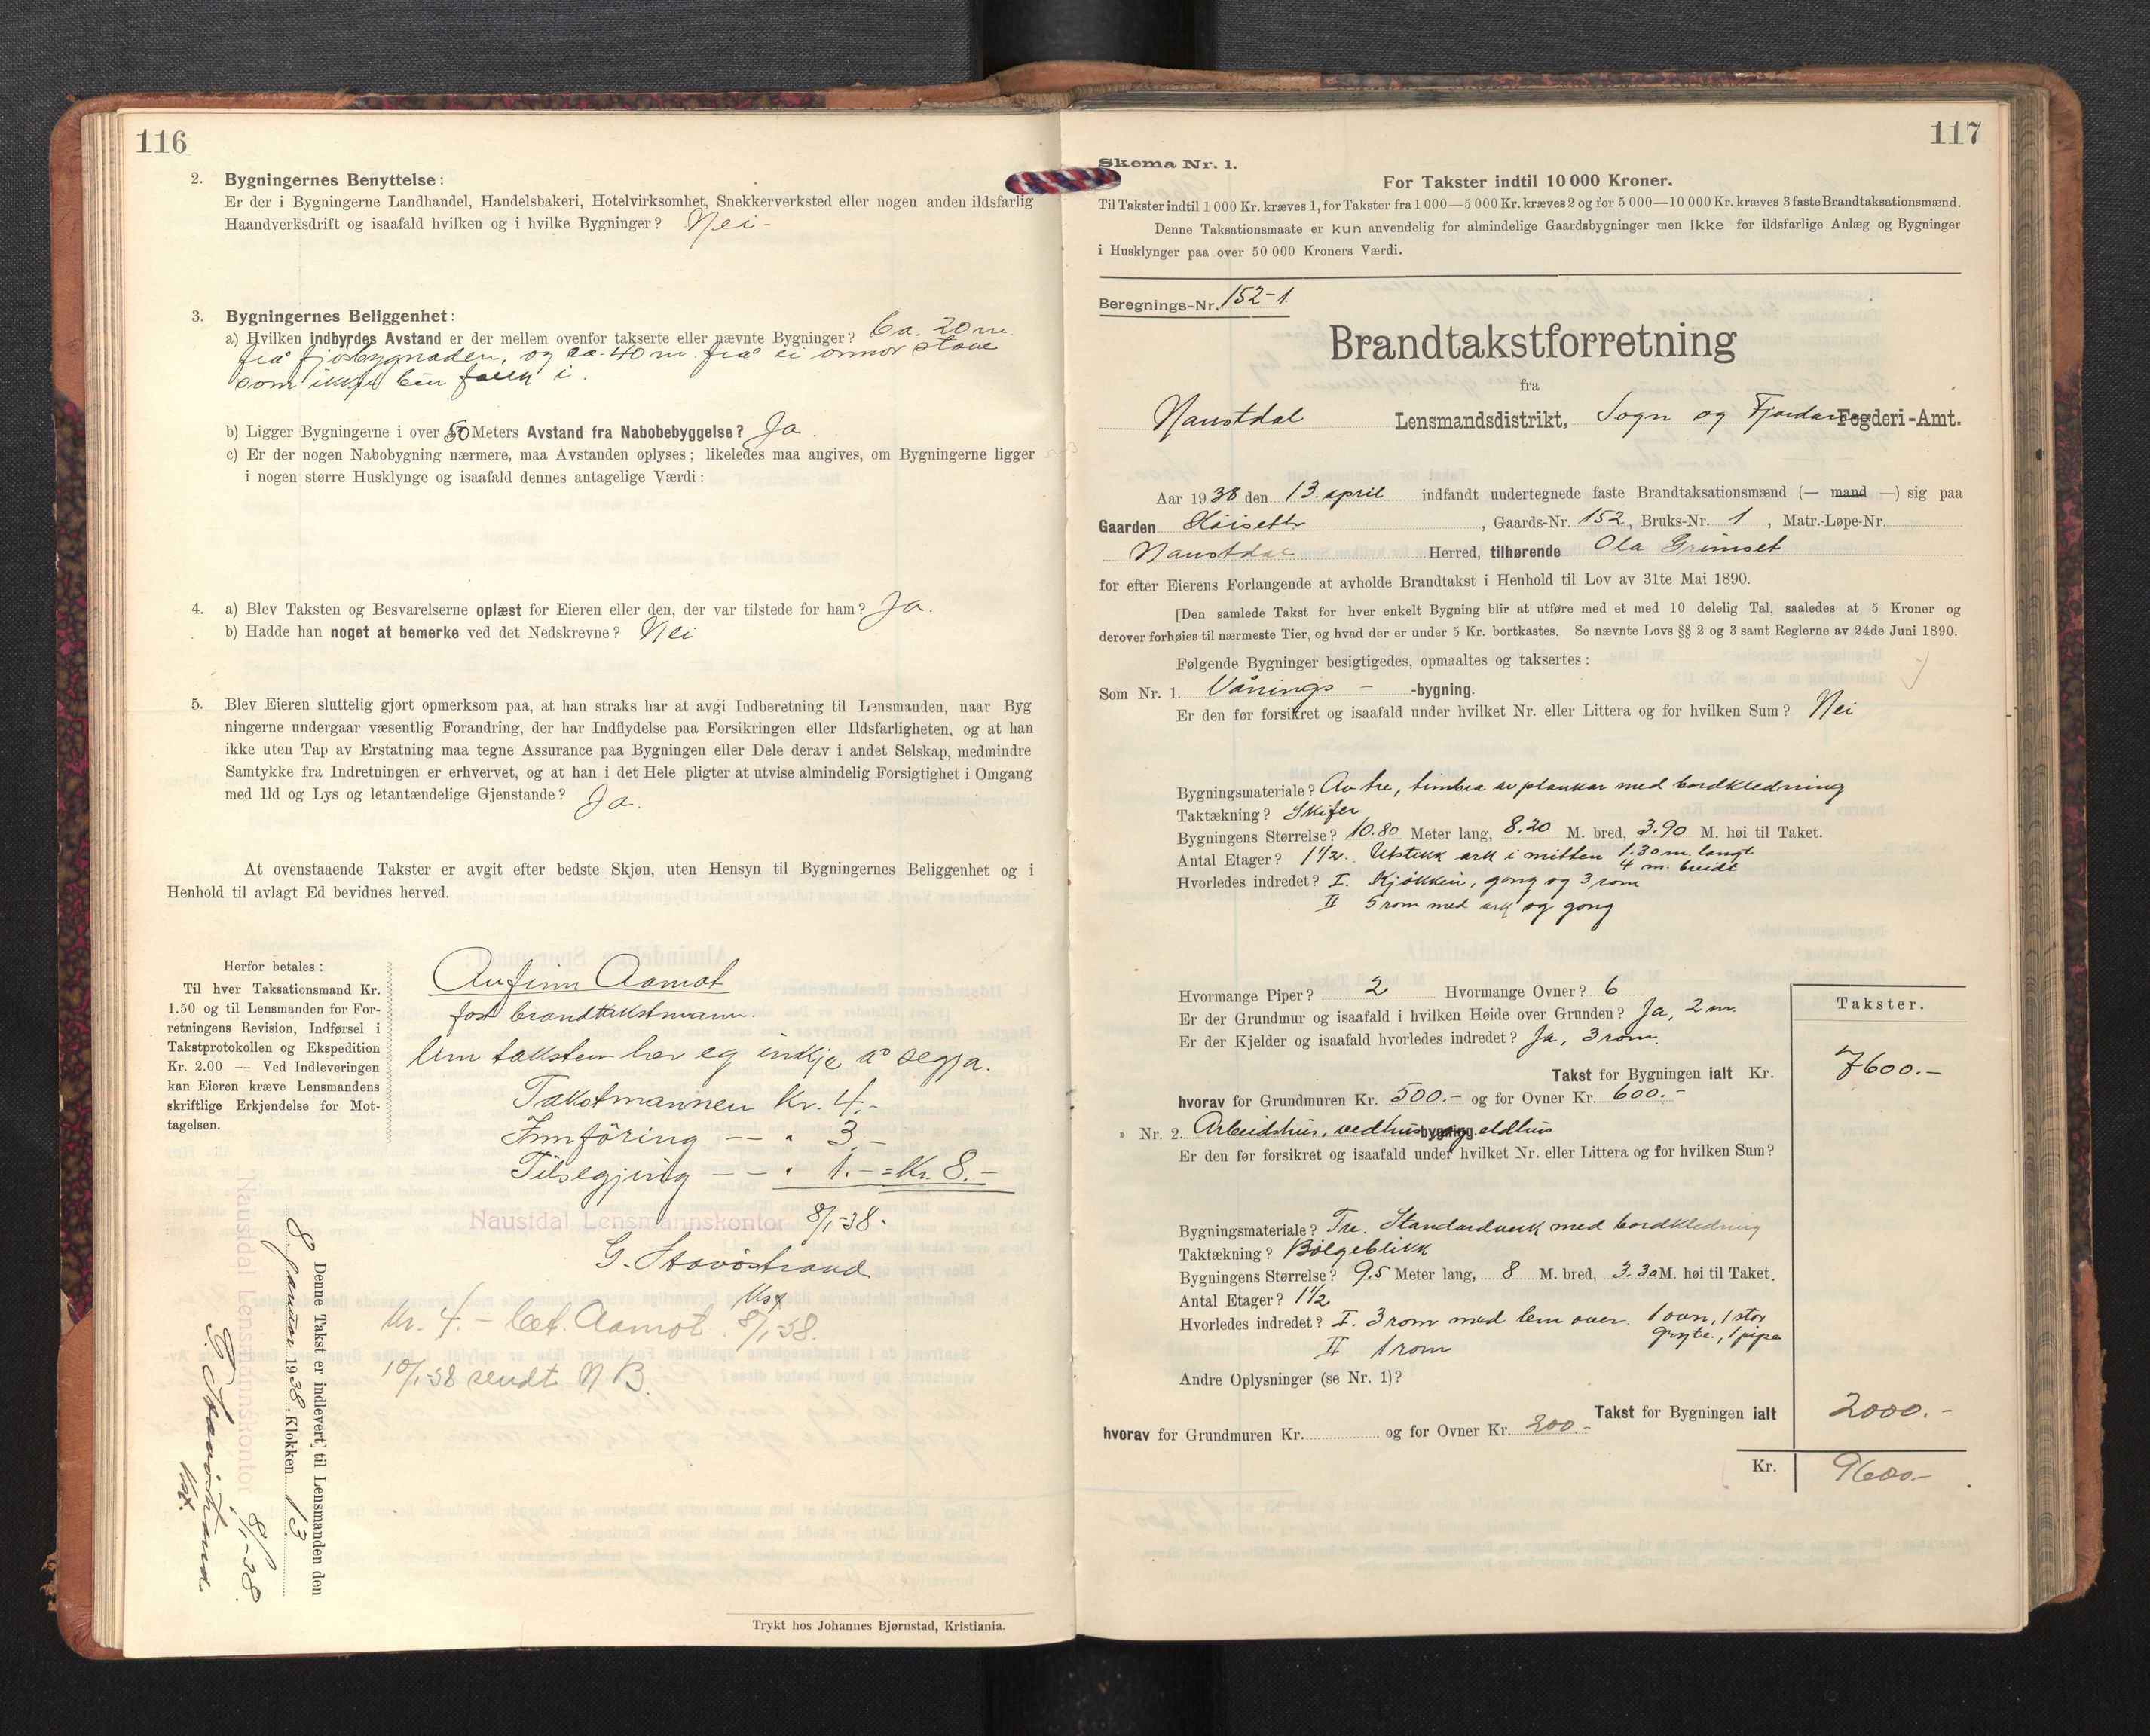 116
2. Bygningernes Benyttelse:
Er der i Bygningerne Landhandel, Handelsbakeri, Hotelvirksomhet, Snekkerverksted eller nogen anden ildsfarlig
Haandverksdrift og isaafald hvilken og i hvilke Bygninger? Nei -
3. Bygningernes Beliggenhet:
a) Hvilken indbyrdes Avstand er der mellem ovenfor takserte eller nævnte Bygninger? Ca. 20 m.
frå fjösbygnaden, og ca. 40 m. frå ei onnor stove
som ikkje bur folk i.
b) Ligger Bygningerne i over 50 Meters Avstand fra Nabobebyggelse? Ja.
c) Er der nogen Nabobygning nærmere, maa Avstanden oplyses; likeledes maa angives, om Bygningerne ligger
i nogen større Husklynge og isaafald dennes antagelige Værdi:
4. a) Blev Taksten og Besvarelserne oplæst for Eieren eller den, der var tilstede for ham? Ja.
b) Hadde han noget at bemerke ved det Nedskrevne? Nei
5. Blev Eieren sluttelig gjort opmerksom paa, at han straks har at avgi Indberetning til Lensmanden, naar Byg
ningerne undergaar væsentlig Forandring, der har Indflydelse paa Forsikringen eller Ildsfarligheten, og at han
ikke uten Tap av Erstatning maa tegne Assurance paa Bygningen eller Dele derav i andet Selskap, medmindre
Samtykke fra Indretningen er erhvervet, og at han i det Hele pligter at utvise almindelig Forsigtighet i Omgang
med Ild og Lys og letantændelige Gjenstande? Ja.
At ovenstaaende Takster er avgit efter bedste Skjøn, uten Hensyn til Bygningernes Beliggenhet og i
Henhold til avlagt Ed bevidnes herved.
Herfor betales:
Til hver Taksationsmand Kr.
1.50 og til Lensmanden for For-
retningens Revision, Indførsel i
Takstprotokollen og Ekspedition
Kr. 2.00 — Ved Indleveringen
kan Eieren kræve Lensmandens
skriftlige Erkjendelse for Mot-
tagelsen.
Anfinn Aamot
fast brandtakstmann.
Um taksten har eg inkje å segja.
Takstmannen Kr. 4.-
Innföring -- " 3.-
Tilsegjing -- " 1.- = Kr. 8.-
Naustdal Lensmannskontor 8/1-38.
G. Stavöstrand
Kst
Kr. 4.- bet. Aamot. 8/1-38.
10/1-38 sendt N. B.
Denne Takst er indlevert til Lensmanden den
8. januar 1938, Klokken 13
Naustdal Lensmannskontor 8/1-38.
G. Stavöstrand
Kst.
Trykt hos Johannes Bjørnstad, Kristiania.
117
Skema Nr. 1.
For Takster indtil 10 000 Kroner.
Til Takster indtil 1 000 Kr. kræves 1, for Takster fra 1 000—5 000 Kr. kræves 2 og for 5 000—10 000 Kr. kræves 3 faste Brandtaksationsmænd.
Denne Taksationsmaate er kun anvendelig for almindelige Gaardsbygninger men ikke for ildsfarlige Anlæg og Bygninger
i Husklynger paa over 50 000 Kroners Værdi.
Beregnings-Nr. 152-1
Brandtakstforretning
fra
Naustdal Lensmandsdistrikt, Sogn og Fjordane Fogderi-Amt.
Aar 1938 den 13. april indfandt undertegnede faste Brandtaksationsmænd (— mand —) sig paa
Gaarden Höiseth, Gaards-Nr. 152, Bruks-Nr. 1, Matr.-Løpe-Nr.
Naustdal Herred, tilhørende Ola Grimset
for efter Eierens Forlangende at avholde Brandtakst i Henhold til Lov av 31te Mai 1890.
[Den samlede Takst for hver enkelt Bygning blir at utføre med et med 10 delelig Tal, saaledes at 5 Kroner og
derover forhøies til nærmeste Tier, og hvad der er under 5 Kr. bortkastes. Se nævnte Lovs §§ 2 og 3 samt Reglerne av 24de Juni 1890.
Følgende Bygninger besigtigedes, opmaaltes og taksertes:
Som Nr. 1. Vånings - -bygning.
Er den før forsikret og isaafald under hvilket Nr. eller Littera og for hvilken Sum? Nei
Bygningsmateriale? Av tre, timbra av plankar med bordkledning
Taktækning? Skifer
Bygningens Størrelse? 10.80 Meter lang, 8.20 M. bred, 3.90 M. høi til Taket.
Antal Etager? 1 1/2. Utstikk ark i mitten 1.30 m. langt
4 m. breidt
Hvorledes indredet? I. Kjökken, gong og 3 rom
II 5 rom med ark og gong
Hvormange Piper? 2 Hvormange Ovner? 6
Takster.
Er der Grundmur og isaafald i hvilken Høide over Grunden? Ja, 2 m.
Er der Kjelder og isaafald hvorledes indredet? Ja, 3 rom.
Takst for Bygningen ialt Kr. 7600.-
hvorav for Grundmuren Kr. 500.- og for Ovner Kr. 600.-
Nr. 2. Arbeidshus, vedhus og eldhus bygning
Er den før forsikret og isaafald under hvilket Nr. eller Littera og for hvilken Sum?
Bygningsmateriale? Tre. Standardverk med bordkledning
Taktækning? Bölgeblikk
Bygningens Størrelse? 9.5 Meter lang, 8 M. bred, 3.30 M. høi til Taket.
Antal Etager? 1 1/2
Hvorledes indredet? I. 3 rom med lem over. 1 ovn, 1 stor
gryte, 1 pipe
II 1 rom
Andre Oplysninger (se Nr. 1)?
Takst for Bygningen ialt 2000.-
hvorav for Grundmuren Kr. og for Ovner Kr. 200.-
Kr. 9600.-